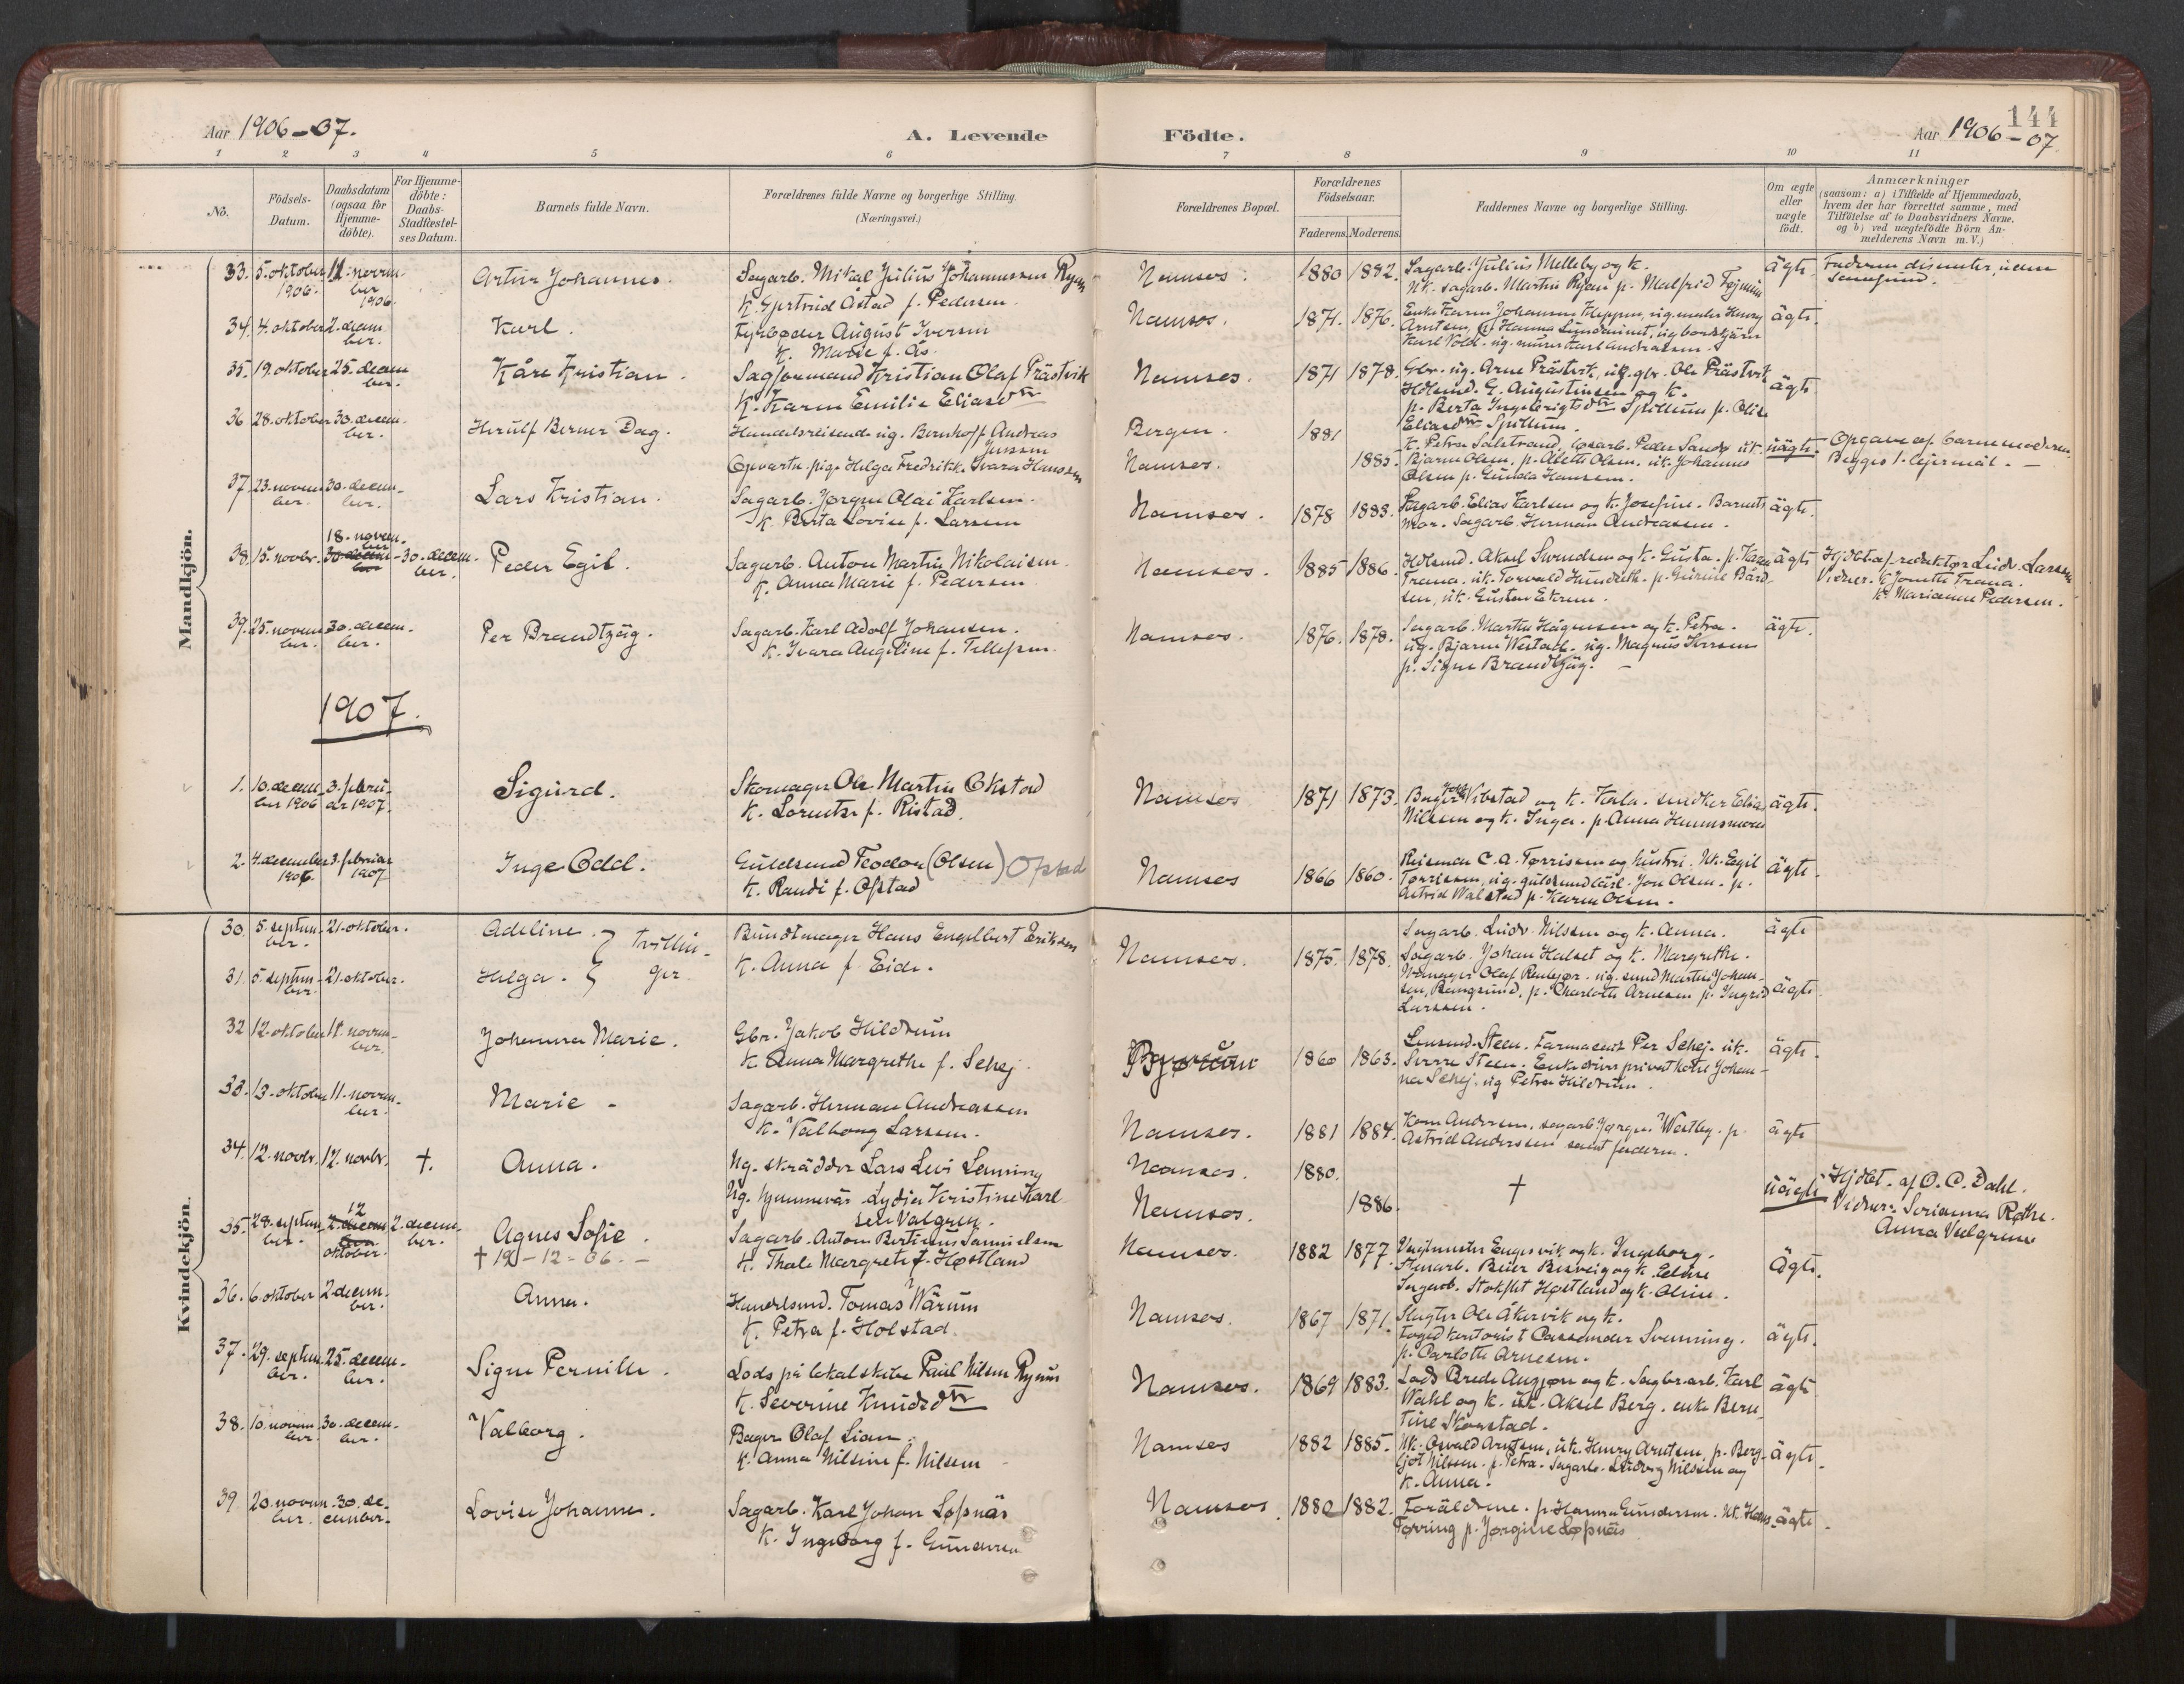 144
Aar 1906-07.
A. Levende Födte.
Aar 1906-07.
1 2 3 4 5 6 7 8 9 10 11
No.
Födsels-Datum.
Daabsdatum (ogsaa for Hjemme-döbte).
For Hjemme-döbte: Daabs-Stadfæstel-ses Datum.
Barnets fulde Navn.
Forældrenes fulde Navne og borgerlige Stilling.
(Næringsvei.)
Forældrenes Bopæl.
Forældrenes Födselsaar.
Faderens. Moderens.
Faddernes Navne og borgerlige Stilling.
Om ægte eller uægte födt.
Anmærkninger
(saasom: a) i Tilfælde af Hjemmedaab,
hvem der har forrettet samme, med
Tilföielse af to Daabsvidners Navne,
og b) ved uægtefödte Börn An-
melderens Navn m. V.)
Mandkjön.
33. 5. oktober 1906. 11. novem-ber 1906. Artur Johannes. Sagarb. Mikal Julius Johannessen Ryen
K. Gjertrud Åstad f. Pedersen. Namsos. 1880 1882. Sagarb. Julius Melleby og k.
Uk. sagarb. Martin Ryen p. Malfrid ägte.
34. 4. oktober 2. decem-ber. Karl. Fyrböder August Iversen
K. Marie f. Ås. Namsos. 1871. 1876. Enke Karen Johansen ug. maler Henry
Arntsen, Hanna
Karl Vold. ug. murer Karl Andreassen. ägte.
35. 19. oktober 25. decem-ber. Kåre Kristian. Sagformand Kristian Olaf Prästvik
K. Karen Emilie Eliasdtr Namsos. 1871 1878. Gbr. ug. Arne Prästvik, uk. gbr. Ole Prästvik
Hdlsmd. G. Augustinsen og k.
p. Berta Ingebrigtsdtr Spillum p. Olise
Eliasdtr Spillum. ägte
36 28. oktober 30. decem-ber. Herulf Berner Dag. Handelsreisende ug. Bernhoff Andreas
Jenssen
Opvartn. pige Helga Fredrikk. Ivara Hanssen Bergen. Namsos. 1881 1885. K. Petra Salstrand, Peder Sands uk.
Bjarne Olsen, p. Aletti Olsen. uk. Johannes
Olsen p. Gunda Hansen. uägte. Opgave af barnemoderen.
Begges 1. lejermål.
37. 23. novem-ber. 30. decem-ber. Lars Kristian. Sagarb. Jørgen Olai Karlsen.
K. Berta Lovise f. Larssen Namsos. 1878 1883. Sagarb. Elias Karlsen og k. Josefine. Barnets
mor. Sagarb. Herman Andreassen. ägte.
38. 15. novbr. 18. novem-ber 30. decem-ber 30. decem-ber. Peder Egil. Sagarb. Anton Martin Nikolaisen.
K. Anna Marie f. Pedersen Namsos. 1885 1886. Hdlsmd. Aksel Svendsen og k. Gusta. p. Karen
Trana. uk. Torvald p. Gurine Bård-
sen, uk. Gustav Ekrem. ägte Hjdbt. af redaktør Ludv. Larssen
Vidner. K. Jonette Trana.
K. Marianne Pedersen.
39. 25. novem-ber. 30. decem-ber. Per Brandtzäg. Sagarb. Karl Adolf Johansen.
K. Ivara Angeline f. Tillefsen. Namsos. 1876. 1878. Sagarb. Martin Hågensen og k. Petra.
ug. Bjarne Westad. ug. Magnus Iversen
p. Signe Brandtzäg. ägte.
1907.
1. 10. decem-ber 1906 3. febru-ar 1907. Sigurd. Skomager Ole Martin Okstad
K. Lorentse f. Ristad. Namsos 1871 1873. Bager Vibstad og k. Karla. snedker Edias
Nilssen og k. Inga. p. Anna ägte.
2. 4. december 1906. 3. februar 1907 Inge Odd. Guldsmed Teodor (Olsen) Opstad
K. Randi f. Ofstad Namsos 1866 1860. C. A. Torrissen og hustru. Uk. Egil
Torrissen, ug. guldsmedlärl. Jon Olsen. p.
Astrid Walstad p. Karen Olsen. ägte.
Kvindekjön.
30. 5. septem-ber. 21. oktober. Adeline.
31. 5. septem-ber. 21. oktober. Helga. } tvillin-ger. Bundtmager Hans Engelbert Eriksen
K. Anna f. Eide. Namsos. 1875. 1878. Sagarb. Ludv. Nilssen og k. Anna.
Sagarb. Johan Halset og k. Margrethe.
Olaf ug. smed Martin Johan-
sen, Bangsund. p. Charlotte Arnesen p. Ingrid
Larssen. ägte ägte
32 12. oktober 11. novem-ber. Johanna Marie. Gbr. Jakob Hildrum
K. Anna Margrethe f. Sehej. 1860 1863. Lensmd. Steen. Farmaceut Per Sehej. uk.
Sverre Steen. Enke driver privat hotel Johan-
na Sehej. ug Petra Hildrum. ägte.
33. 13. oktober 11. novem-ber. Marie - Sagarb. Herman Andreassen
K. Valborg Larssen. Namsos. 1881 1884. Korn. Andersen, sagarb. Jørgen Westby. p.
Astrid Anderssen samt faderen. ägte
34. 12. novbr. 12. novbr. †. Anna. Ug. skrädder Lars Levi Lenning
Ug. hjemmevär. Lydia Kristine Karl-
sen Valgren. Namsos. Namsos. 1880. 1886. † uägte Hjdbt. af O. C. Dahl.
Vidner: Serianna Røthe.
Anna
35. 28. septem-ber. 12 2. decem-ber oktober. 2. decem-ber. Agnes Sofie.
† 19 - 12 - 06. - Sagarb. Anton Bertinus Samuelsen
K. Thale Margrete f. Høstland Namsos. 1882 1877. Vagtmester Engesvik og k. Ingeborg.
Stenarb. og k. Edine
Sagarb. Høstland og k. Oline. Ägte.
36. 6. oktober 2 decem-ber. Anna. Handelsmd. Tomas Wärum
K. Petra f. Holstad. Namsos. 1867 1871. Slagter Ole Åkervik og k.
Fogedkontorist Cassander Svenning.
p. Carlotte Arnesen. ägte.
37. 29. septem-ber. 25. decem-ber. Signe Pernille. Lods på lokalskibe Paul Nilsen Ryum
K. Severine Knudsdtr Namsos. 1869 1883. Lods Brede og k. Sagbr.arb. Karl
Wahl og k. uk. Aksel Berg. enke Bern-
tine ägte
38. 10. novem-ber. 30. decem-ber. Valborg. Bager Olaf Lian.
K. Anna Nilsine f. Nilsen Namsos 1882 1885. Uk. Osvald Arntsen, uk. Henry Arntsen, p. Berg-
ljot Nilssen. p. Petra. Sagarb. Ludvig Nilssen og
K. Anna. ägte
39. 20. novem-ber. 30. de-cember. Lovise Johanne. Sagarb. Karl Johan Løfnäs
K. Ingeborg f. Gundersen Namsos. 1880 1882. Foräldrene. p. Hanna Gundersen. Uk. Hans
Tørring p. Jørgine Løfnäs ägte.